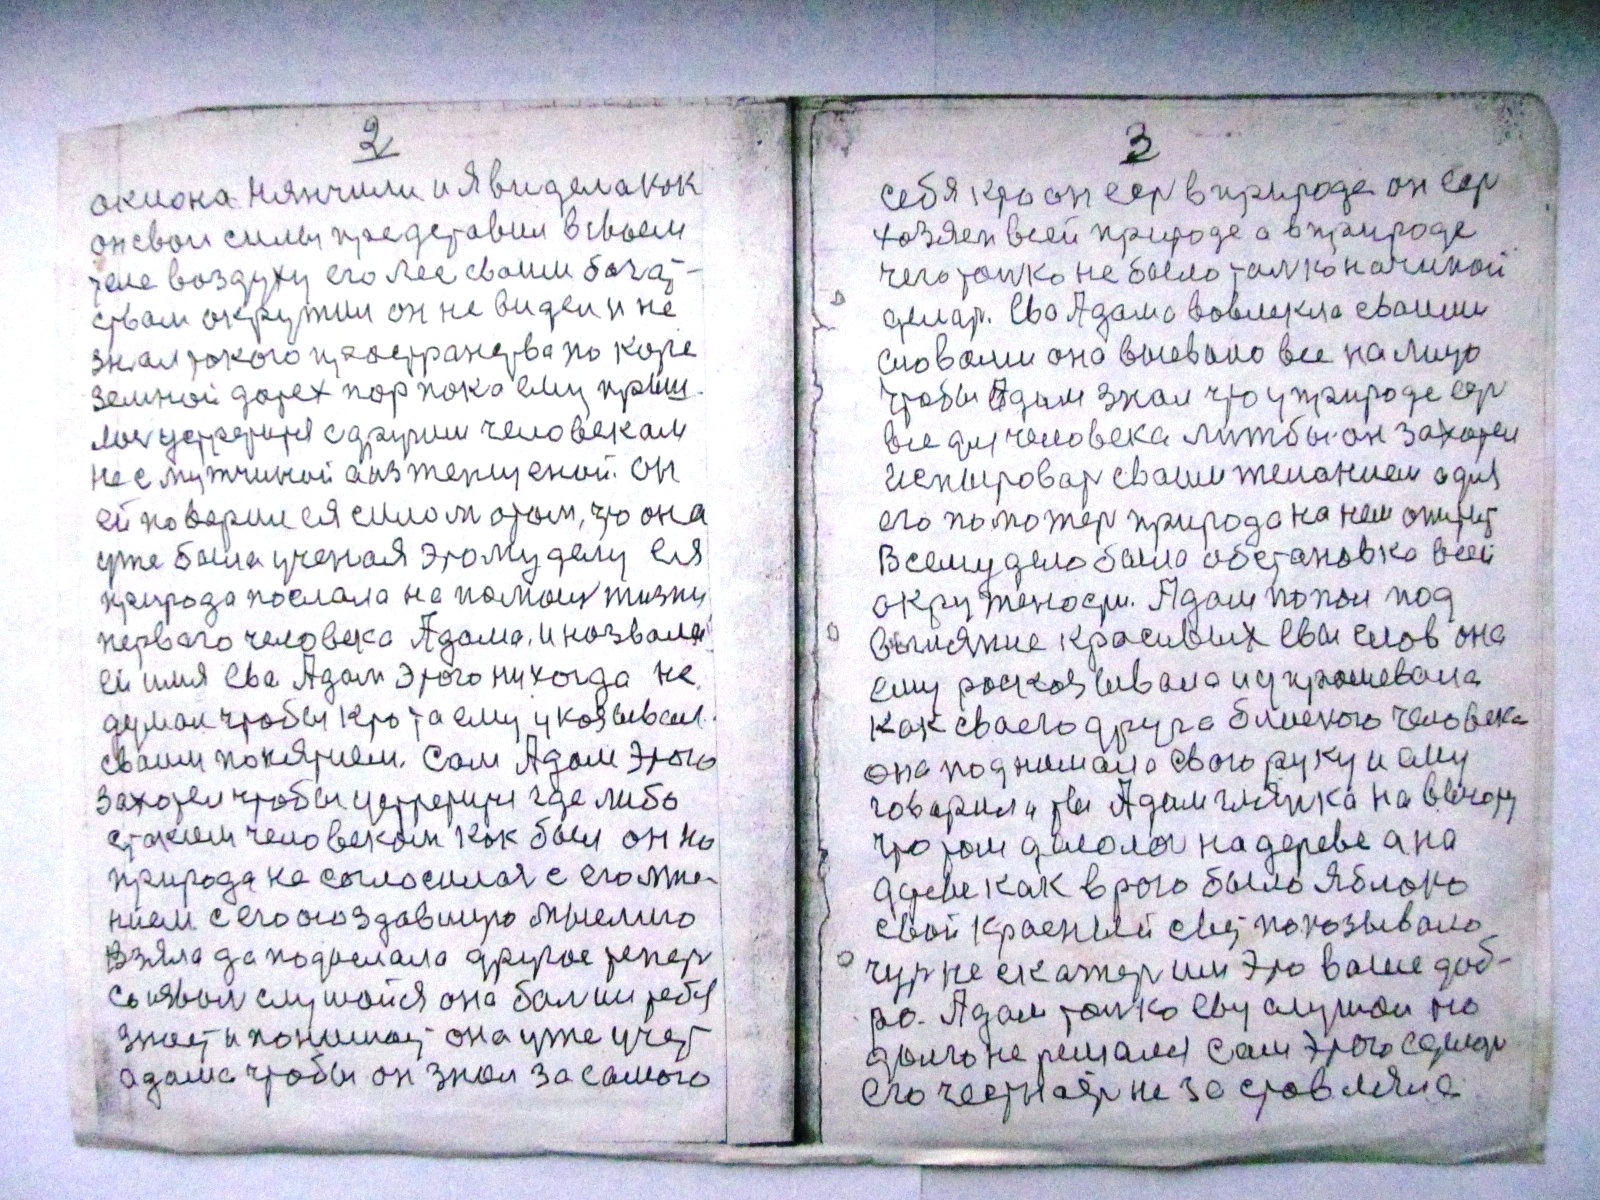 2
он своi силы представил в своем
теле воздуху его все своим богат-
ством окружил он не видел и не
знал такого пространства по коре
земной до тех пор пока ему приш-
лось устретится с другим человекам
не с мужчиной а из женщеной. Он
ей поверил ея силом о том, что она
уже была ученая этому делу Ея
природа послала на помощ жизни
перваго человека Адама. и назвала
ей имя Ева Адам этого никогда не
думал чтобы кто та ему указывал
своим понятием. Сам Адам этого
захотел чтобы устретится где либо
стаким человеком как был он но
природа не согласилася с его
нием с его
взяла да подослала другое тепер
слушайся она болши тебя
знает и понимает она уже учет
адама чтобы он знал за самого
3
себя кто он ест в природе он ест
хозяеп всей природе а в природе
чего толко не было толко начинай
делат. Ева Адама вовлекла своими
словами она выевала все на лицо
чтобы Адам знал что у природе ест
все для человека лижбы он захотел
своим желанием а для
его поможет природа на нем
Всему дело была обстановка всей
окружености. Адам попал под
влияние красивых Евы слов она
ему расказывала и упрошевала
как своего друга близкого человека
она поднимала свою руку и ему
говорила ты Адам глянка на высоту
что там делалос на дереве а на
древе как врого было яблоко
свой красный свет показывало
чут не скажет им это ваше доб-
ро. Адам толко Еву слушал но
долго не решался сам этого сделат
его чест не заставляла